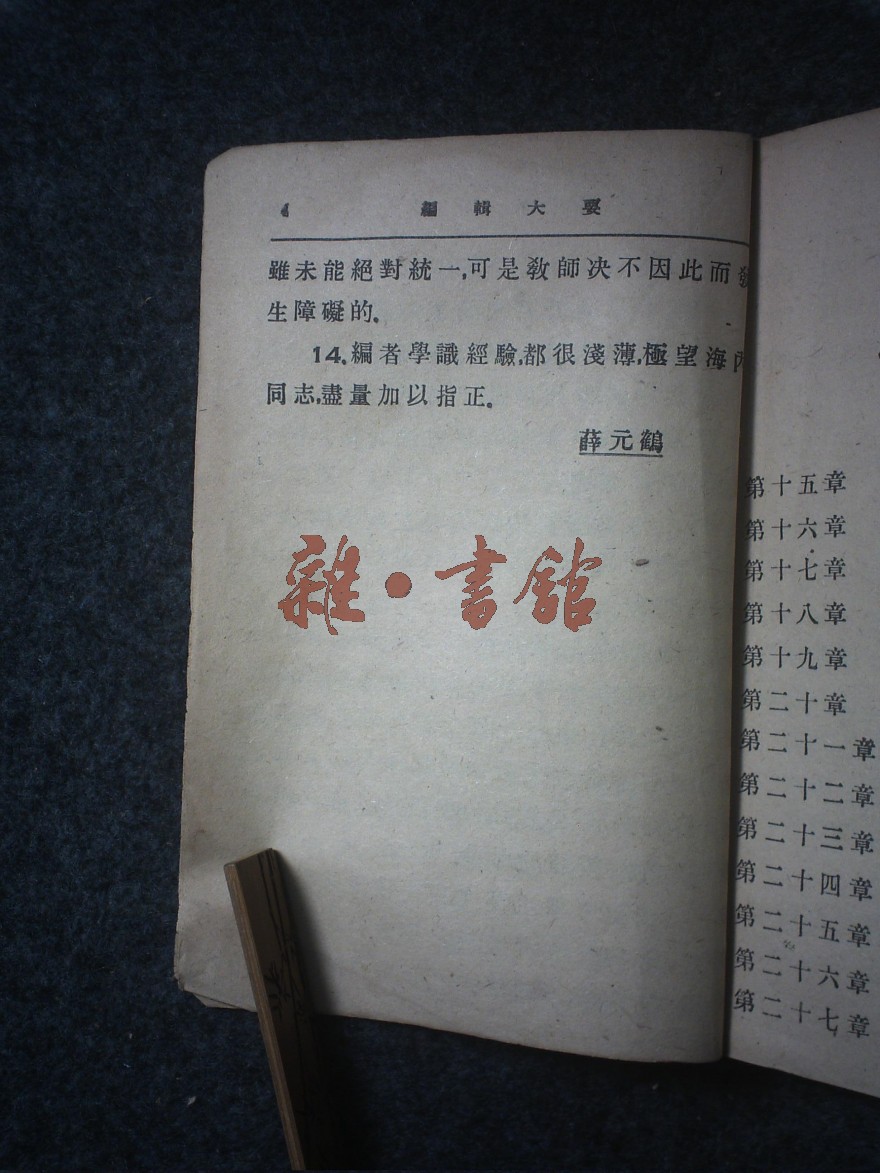 4 編輯大要
雖未能絕對統一,可是教師决不因此而發
生障礙的.
14.編者學識經驗,都很淺薄,極望海內
同志,盡量加以指正.
薛元鶴
雜·書館
第十五章
第十六章
第十七章
第十八章
第十九章
第二十章
第二十一章
第二十二章
第二十三章
第二十四章
第二十五章
第二十六章
第二十七章